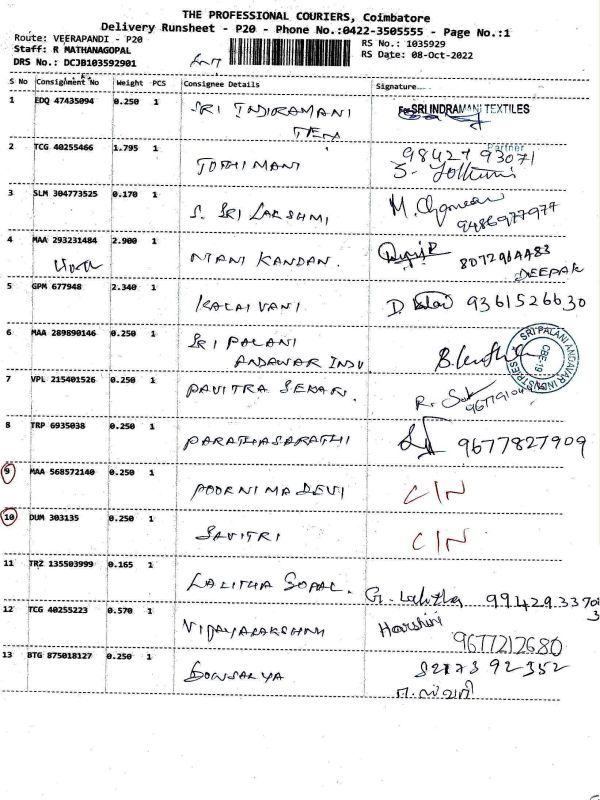 THE PROFESSIONAL COURIERS, Coimbatore
Delivery Runsheet - P20 - Phone No.:0422-3505555 - Page No.:1
Route: VEERAPANDI - P20
Staff: R MATHANAGOPAL
DRS No.: DCJB103592901
RS No.: 1035929
RS Date: 08-Oct-2022
S No Consignment No Weight PCS Consignee Details Signature
1 EDQ 47435094 0.250 1 SRI INDIRAMANI TEX For SRI INDRAMANI TEXTILES
Partner
2 TCG 40255466 1.795 1 JOTHIMANI 98427 93071
S. Jothimani
3 SLM 304773525 0.170 1 S. SRI LAKSHMI M. 9486977977
4 MAA 293231484 2.900 1 MANI KANDAN. 8072964483
DEEPAK
5 GPM 677948 2.340 1 KALAIVANI D. Kalai 9361526630
6 MAA 289890146 0.250 1 SRI PALANI
ANDAWAR INDU
SRI PALANI ANDAVAR INDUSTRIES
CBE-19
7 VPL 215401526 0.250 1 PAVITRA SEKAR. R.
8 TRP 6935038 0.250 1 PARATHASARATHI 9677827909
9 MAA 568572140 0.250 1 POORNIMADEVI C/N
10 DUM 303135 0.250 1 SAVITRI C/N
11 TRZ 135503999 0.165 1 LALITHA GOPAL. G. Lalitha 99429 3370
3
12 TCG 40255223 0.570 1 VIJAYALAKSHMI Harshini
9677217680
13 BTG 875018127 0.250 1 GOWSALYA 82173 92352